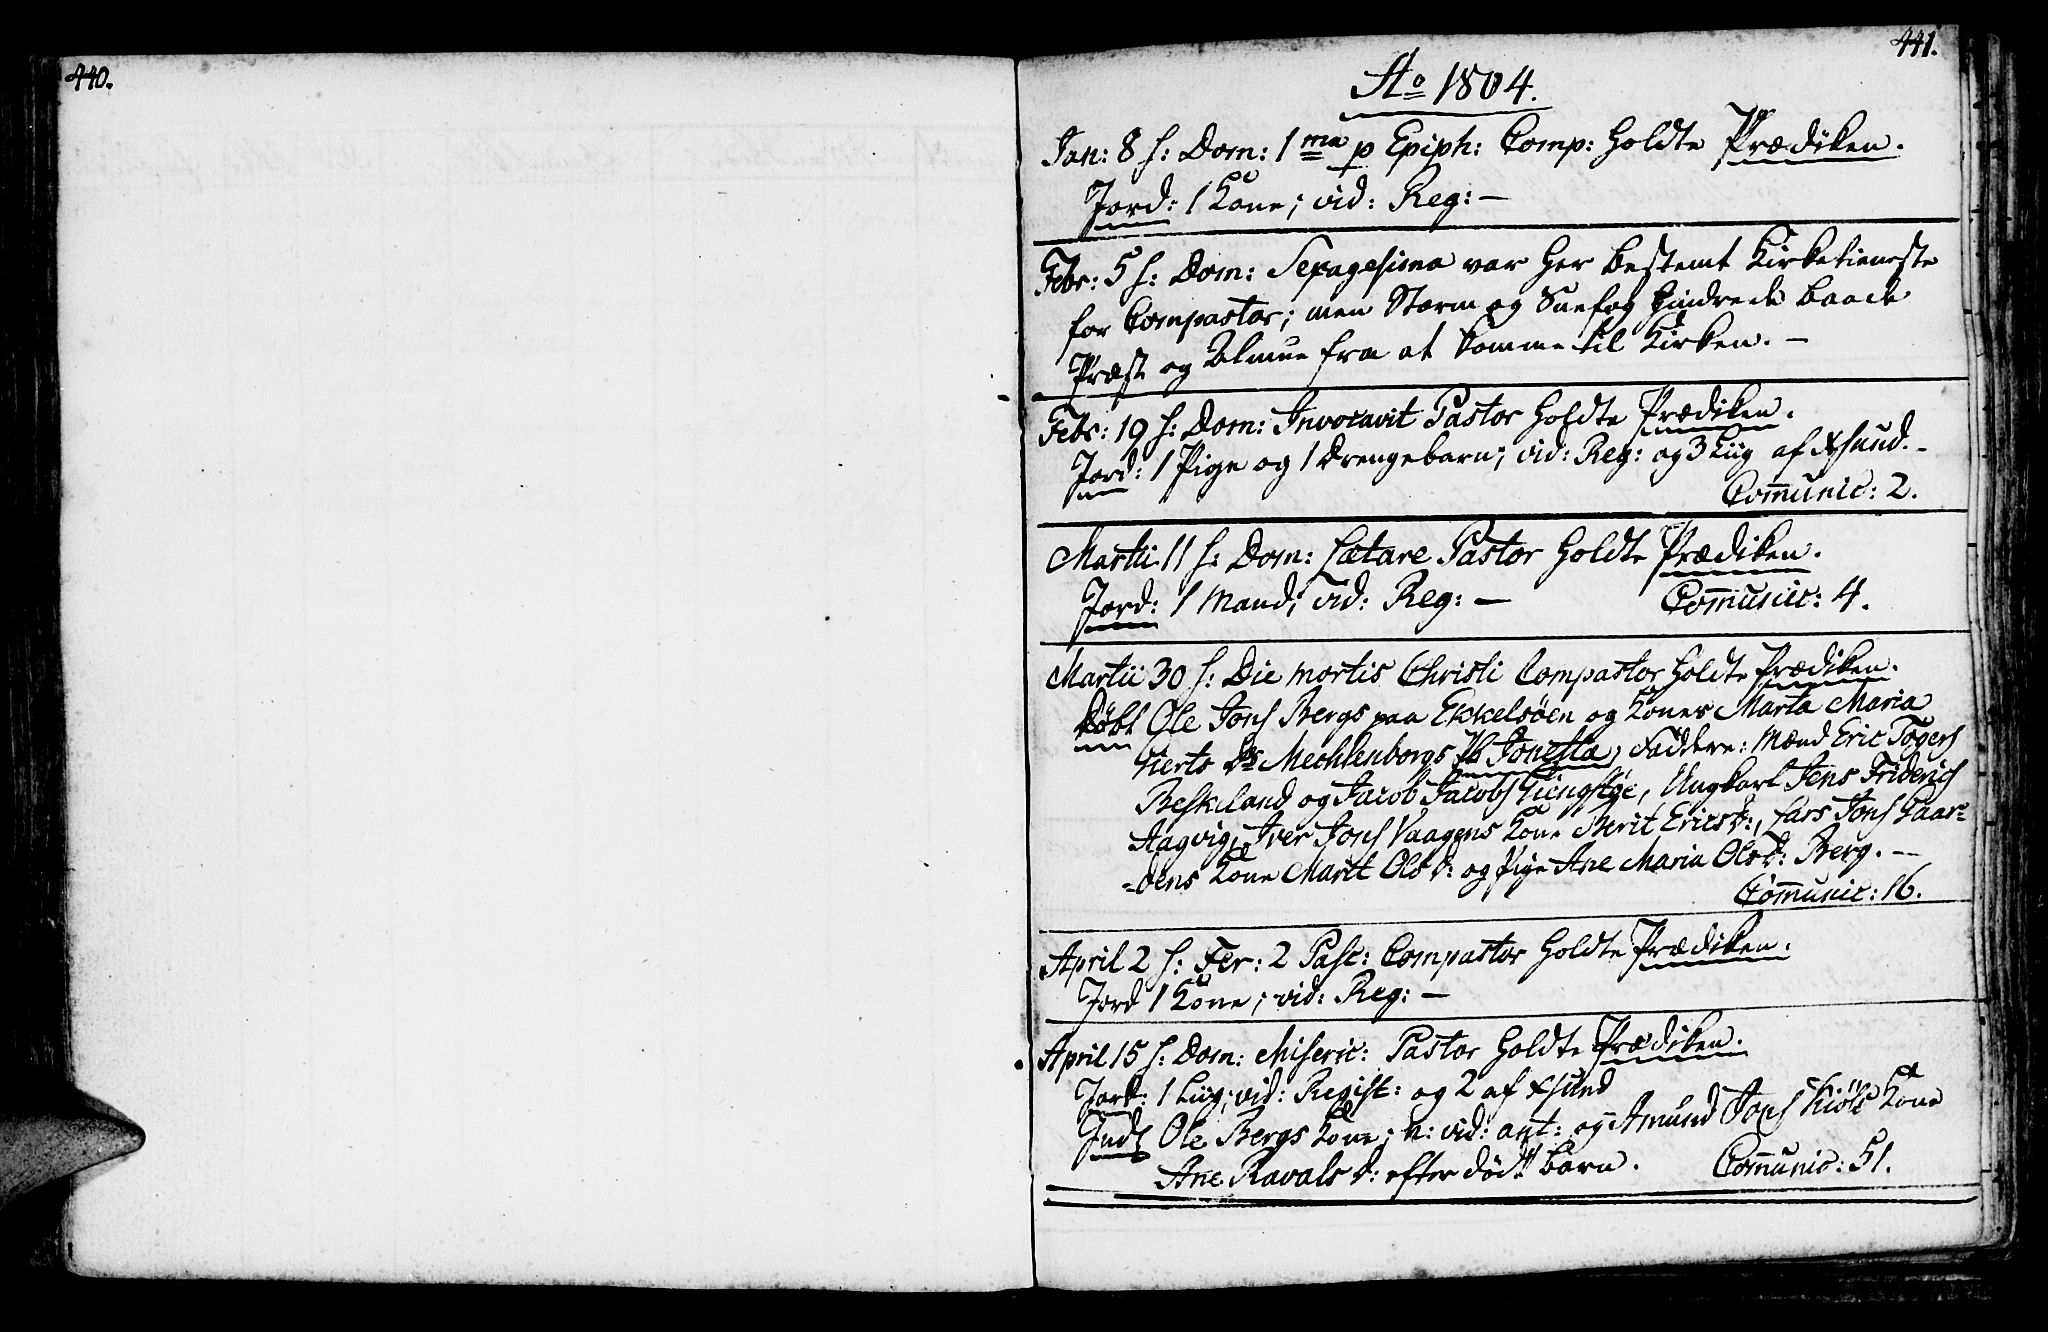 440.
441.
Ao 1804.
Jan: 8 h: Dom: 1ma p Epiph: Comp: holdte Prædiken.
Jord: 1 Kone; vid: Reg: —
Febr: 5 h: Dom: Sexagesima var her bestemt Kirketieneste
for Compastor; men Storm og Sneefog hindrede baade
Præst og Almue fra at komme til Kirken. —
Febr: 19 h: Dom: Invocavit Pastor holdte Prædiken.
Jord: 1 Pige og 1 Drengebarn; vid: Reg: og 3 Liig af xsund. -
Communic: 2.
Martii 11 h: Dom: Lætare Pastor holdte Prædiken.
Jord: 1 Mand; vid: Reg: — Communic: 4.
Martii 30 h: Die mortis Christi Compastor holdte Prædiken.
Døbt Ole Jons Bergs paa Ekkelsöen og Kones Marta Maria
Mechlenborgs Pb Jonetta, Faddere: Mænd Eric Togers
Beskeland og Jacob Jacobs, Ungkarl Jens Friderich
Aagvig, Iver Jons Vaagens Kone Berit Ericsd:, Lars Jons Gaar-
-dens Kone Marit Olsd: og Pige Ane Maria Olsd: Berg. —
Communic: 16.
April 2 h: Fer: 2 Pasc: Compastor holdte Prædiken.
Jord 1 Kone; vid: Reg: —
April 15 h: Dom: Miseric: Pastor holdte Prædiken.
Jord: 1 Liig; vid: Regist: og 2 af xsund
Indl Ole Bergs Kone; n: vid: ant: og Amund Jons Kiöls Kone
Ane Ravalsd: efter död barn. Communic: 51.